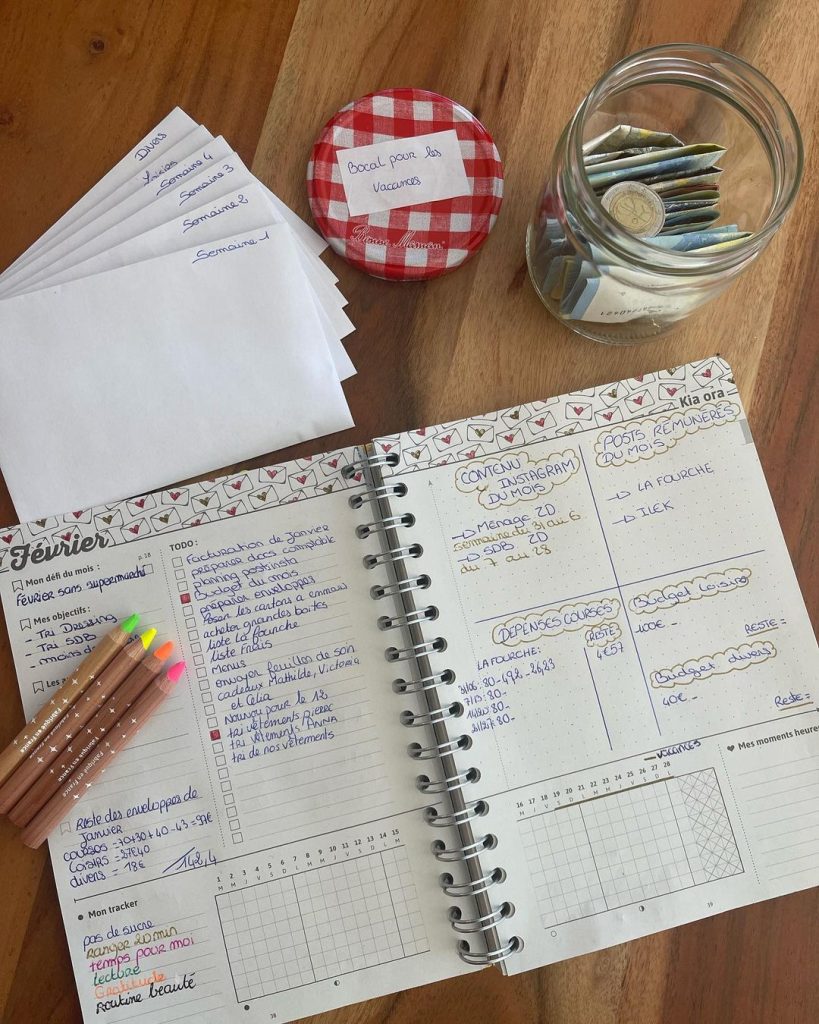 Divers
Semaine 4
Semaine 3
Semaine 2
Semaine 1
Bocal pour les
vacances
Bonne Maman
Kia ora
Février
p.18
Mon défi du mois :
Février sans supermarché
Mes objectifs :
- Tri Dressing
- Tri SDB
- moins de
Les a
TODO :
Facturation de Janvier
préparer docs comptable
planning postinsta
Budget du mois
préparer enveloppes
Poser les cartons a emmaus
acheter grandes boites
liste La fourche
liste frais
menus
envoyer feuilles de soin
cadeaux Mathilde, Victoria
et Célia
Nounou pour le 12
tri vêtements PIERRE
tri vêtements ANNA
tri de nos vêtements
Fabriqué en France
Fabriqué en France
Fabriqué en France
Reste des enveloppes de
Janvier
courses = 70+30+40-43=97€
loisirs = 27€40
divers = 18€
142,4
Mon tracker
pas de sucre
Ranger 20 min
temps pour moi
lecture
Gratitude
Routine beauté
1 2 3 4 5 6 7 8 9 10 11 12 13 14 15
M M J V S D L M M J V S D L M
38
CONTENU
INSTAGRAM
DU MOIS
→ Ménage ZD
semaine du 31 au 6
→ SDB ZD
du 7 au 28
POSTS RÉMUNÉRÉS
DU MOIS
→ LA FOURCHE
→ ILEK
DEPENSES COURSES
RESTE
4€57
LA FOURCHE:
31/06: 80 - 49,2 - 26,23
7/13: 80 -
14/20: 80 -
21/27: 80 -
Budget Loisirs
100€ -
RESTE =
Budget divers
40€ -
Reste =
vacances
16 17 18 19 20 21 22 23 24 25 26 27 28
M J V S D L M M J V S D L
Mes moments heureux
39